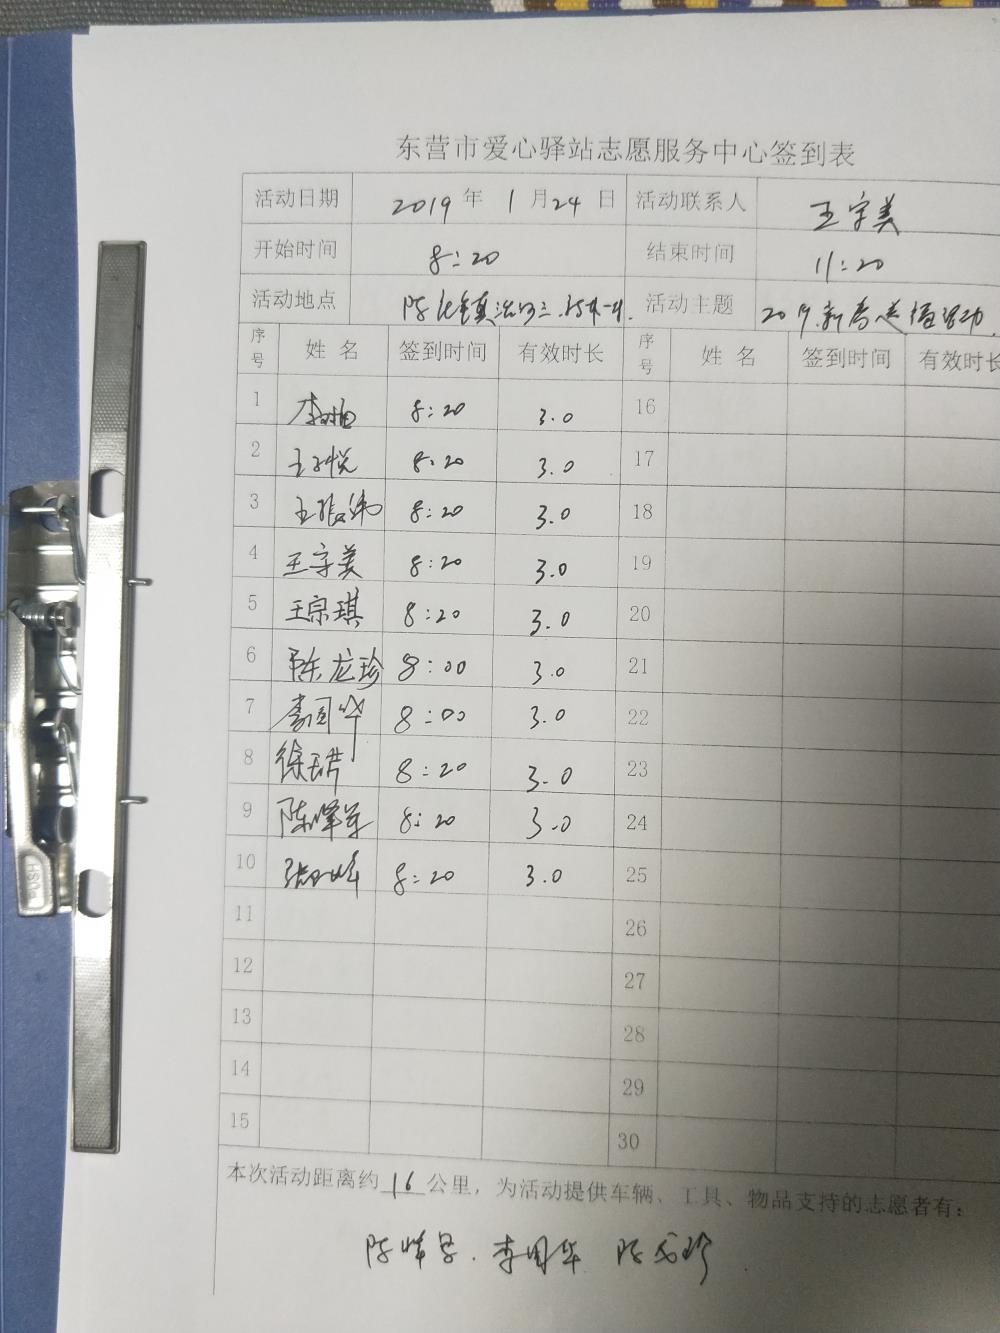 东营市爱心驿站志愿服务中心签到表
活动日期 2019 年 1 月 24 日 活动联系人 王字美
开始时间 8:20 结束时间 11:20
活动地点 活动主题 2019.新春送福活动
序号 姓名 签到时间 有效时长 序号 姓名 签到时间 有效时长
1 8:20 3.0 16
2 王子悦 8:20 3.0 17
3 王振纬 8:20 3.0 18
4 王字美 8:20 3.0 19
5 王宗琪 8:20 3.0 20
6 陈龙珍 8:00 3.0 21
7 李国华 8:00 3.0 22
8 徐珺 8:20 3.0 23
9 8:20 3.0 24
10 8:20 3.0 25
11 26
12 27
13 28
14 29
15 30
本次活动距离约 16 公里，为活动提供车辆、工具、物品支持的志愿者有：
李国华 陈龙珍
HSO